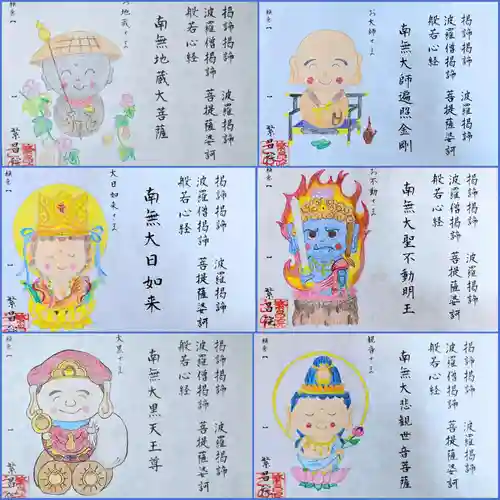 羯諦羯諦　波羅羯諦
波羅僧羯諦　菩提薩婆訶
般若心経
南無地蔵大菩薩
お地蔵さま
繁昌
羯諦羯諦　波羅羯諦
波羅僧羯諦　菩提薩婆訶
般若心経
南無大師遍照金剛
お大師さま
繁昌
羯諦羯諦　波羅羯諦
波羅僧羯諦　菩提薩婆訶
般若心経
南無大日如来
大日如来さま
繁昌
羯諦羯諦　波羅羯諦
波羅僧羯諦　菩提薩婆訶
般若心経
南無大聖不動明王
お不動さま
繁昌
羯諦羯諦　波羅羯諦
波羅僧羯諦　菩提薩婆訶
般若心経
南無大黒天王尊
大黒さま
繁昌
羯諦羯諦　波羅羯諦
波羅僧羯諦　菩提薩婆訶
般若心経
南無大悲観世音菩薩
観音さま
繁昌